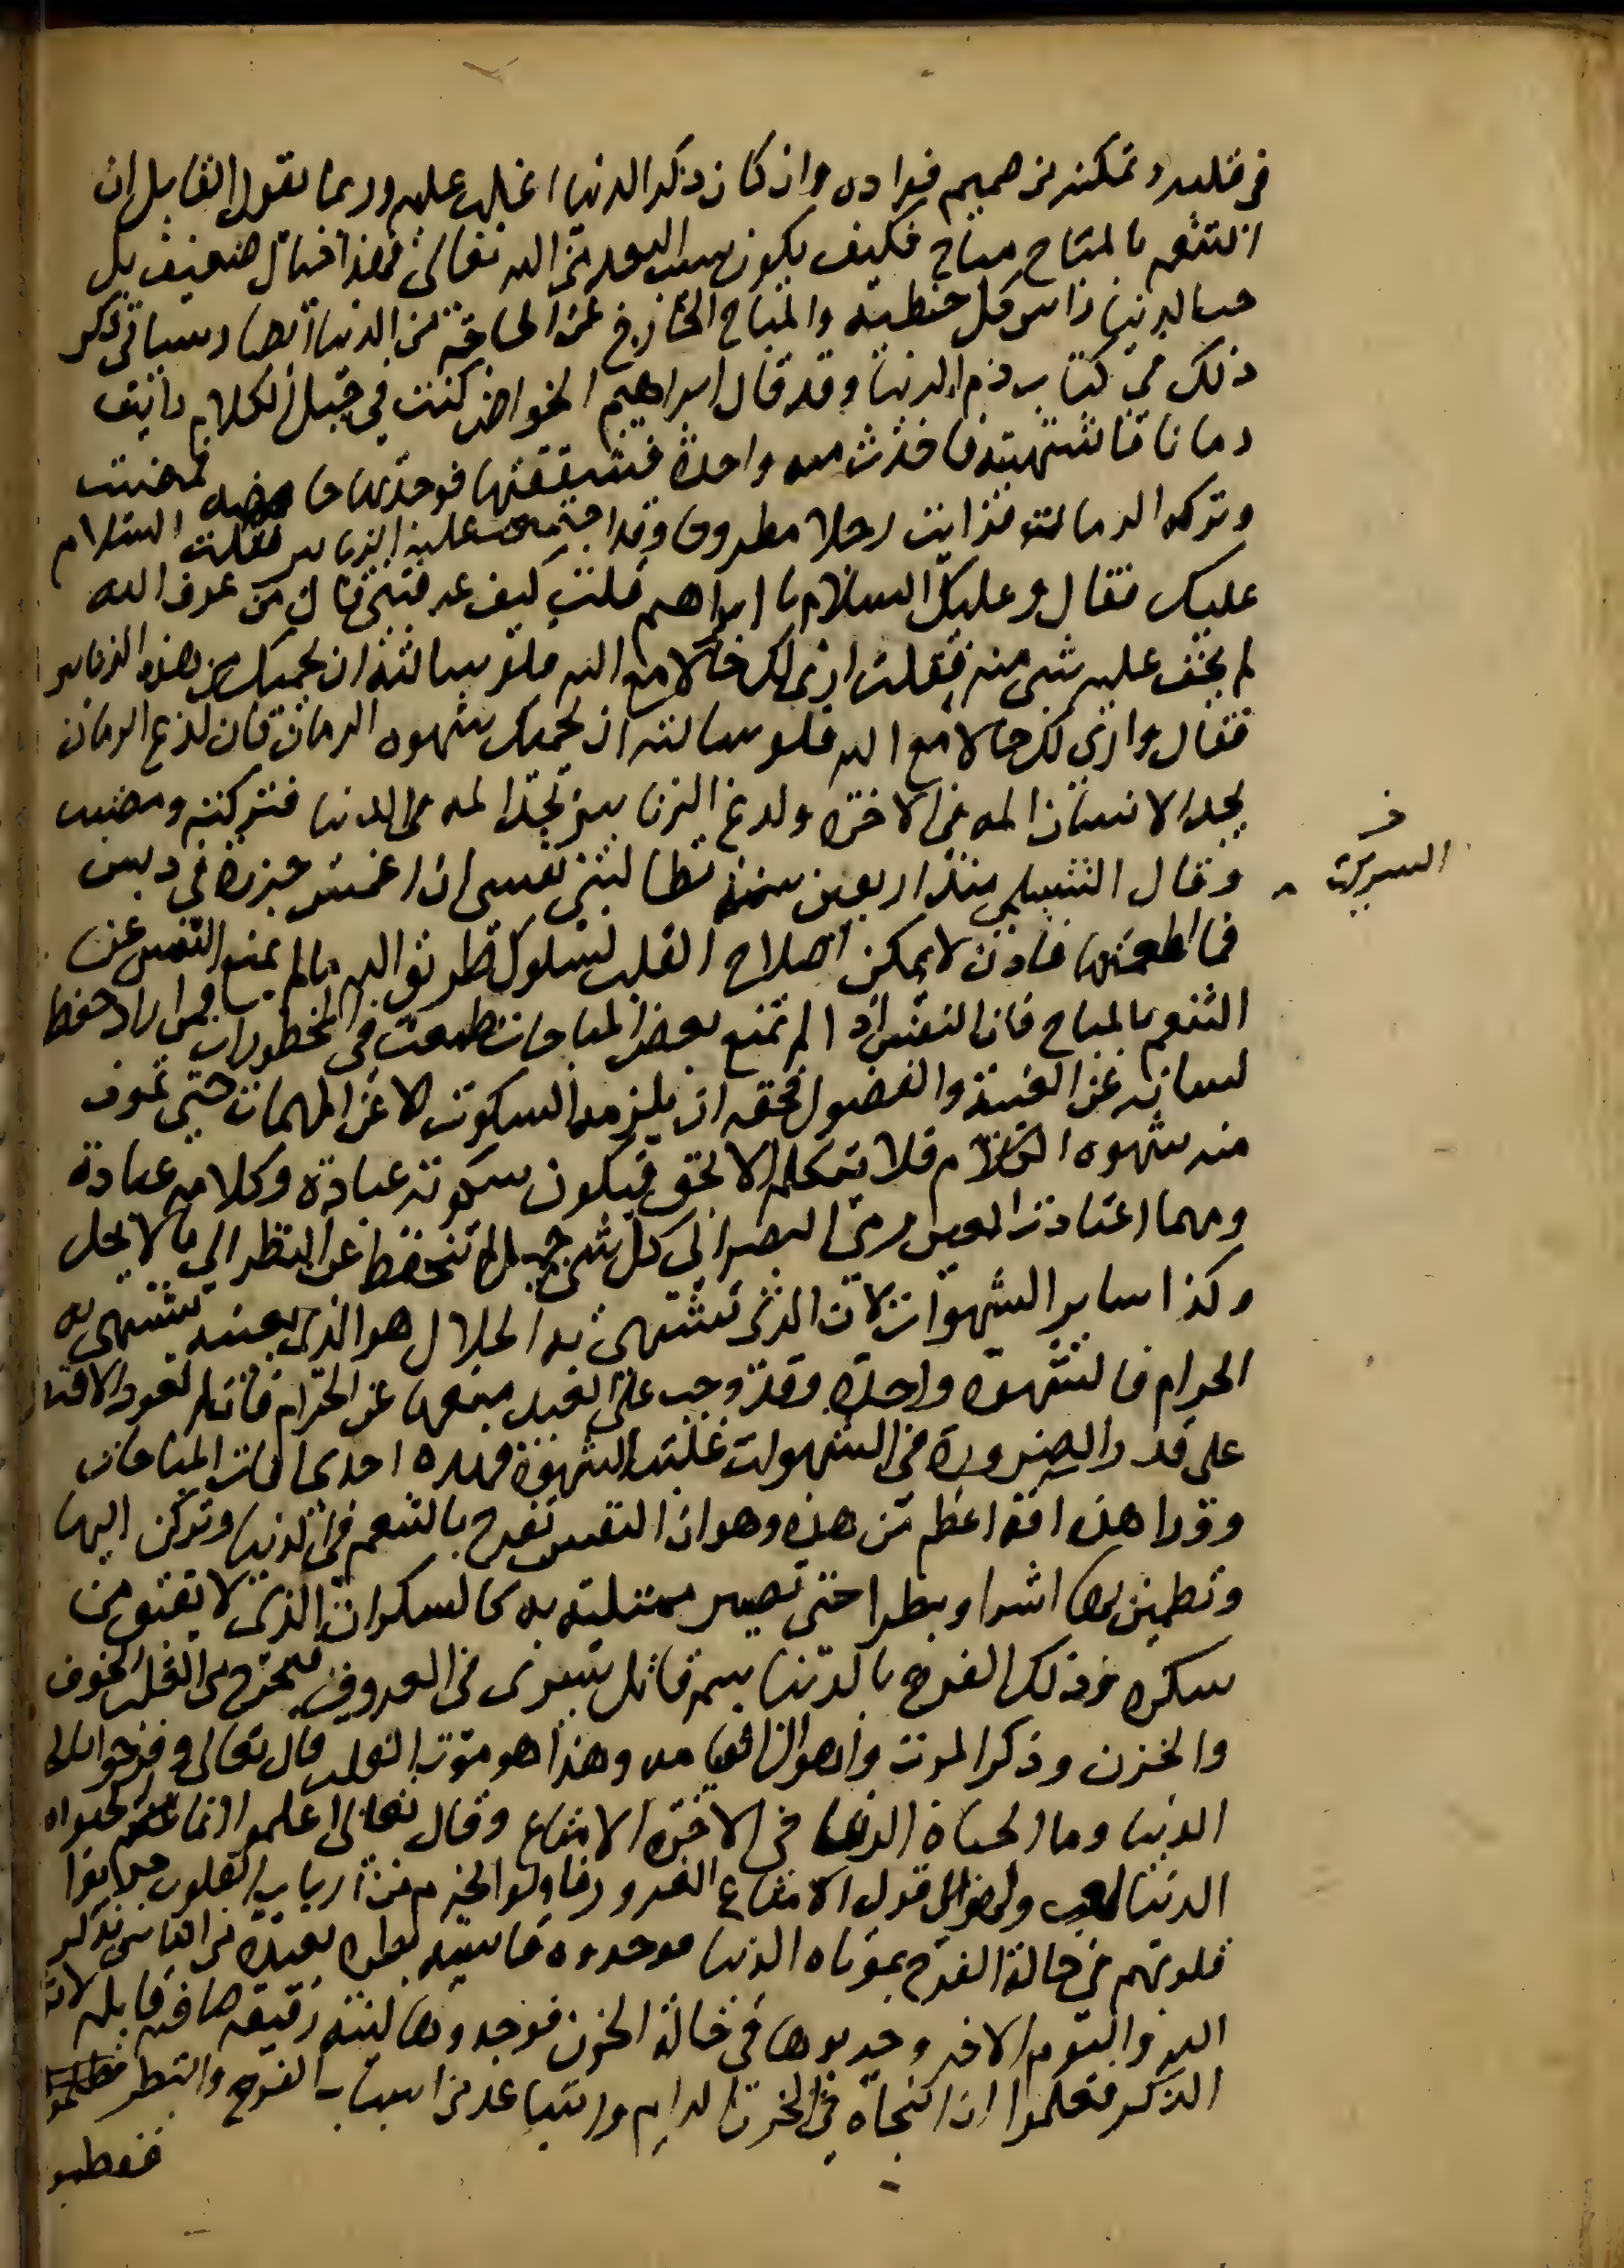 في قلبه وتمكنه من صميم فواده وان كان ذكر الدنيا اغلب عليه وربما يقول القايل ان
التنعم بالمباح مباح فكيف يكون سبب البعد من الله تعالى فهذا خيال ضعيف بل
حب الدنيا راس كل خطية والمباح الخارج عن الحاجة من الدنيا ايضا وسياتي ذكر
ذلك في كتاب ذم الدنيا وقد قال ابراهيم الخواص كنت في جبل اللكام رايت
رمانا فاشتهيته فاخذت منه واحدة فشققتها فوجدتها حامضه فمضيت
وتركت الرمان فرايت رجلا مطروحا وقد اجتمعت عليه الزنابير فقلت السلام
عليك فقال وعليك السلام يا ابراهيم قلت كيف عرفتني قال من عرف الله
لم يخف عليه شي منه فقلت ارى لك حالا مع الله فلو سالته ان يحميك من هذه الزنابير
فقال وارى لك حالا مع الله فلو سالته ان يحميك شهوه الرمان فان لدغ الرمان
يجد الانسان المه في الاخره ولدغ الزنابير يجد المه في الدنيا فتركته ومضيت
وقال السري منذ اربعين سنة تطالبني نفسي ان اغمس خبزة في دبس
فما اطعمتها فاذن لا يمكن اصلاح القلب لسلوك طريق الله ما لم يمنع النفس عن
التنعم بالمباح فان النفس اذا لم تمنع بعض المباحات طمعت في المحظورات فمن اراد حفظ
لسانه عن الغيبة والفضول فحقه ان يلزمه السكوت الا عن المهمات حتى تموت
منه شهوه الكلام فلا يتكلم الا بحق فيكون سكوته عبادة وكلامه عبادة
ومهما اعتادت العين رمي البصر الى كل شي جميل لم تتحفظ عن النظر الى ما لا يحل
وكذا ساير الشهوات لان الذي تشتهي به الحلال هو الذي بعينه تشتهي به
الحرام فالشهوة واحدة وقد وجب على العبد منعها عن الحرام فان لم يعود الاقتصار
على قدر الضرورة في الشهوات غلبته الشهوة فهذه احدى افات المباحات
وورا هذه افة اعظم من هذه وهو ان النفس تفرح بالتنعم في الدنيا وتركن اليها
وتطمين بها اشرا وبطرا حتى تصير ممتلية به كالسكران الذي لا يفيق من
سكره وذلك الفرح بالدنيا سم قاتل يسري في العروق فيخرج من القلب الخوف
والحزن وذكر الموت واهوال القيامه وهذا هو موت القلب قال تعالى وفرحوا بالحياة
الدنيا وما الحياة الدنيا في الاخرة الا متاع وقال تعالى اعلموا انما الحيواه
الدنيا لعب ولهو الى قوله الا متاع الغرور فاولوا الحزم من ارباب القلوب جربوا
قلوبهم في حالة الفرح بمواتاة الدنيا فوجدوها قاسيه بطرة بعيدة من التاثر بذكر
الله واليوم الاخر وجربوها في حالة الحزن فوجدوها لينة رقيقة صافية قابلة لاثر
الذكر فعلموا ان النجاة في الحزن الدايم والتباعد من اسباب الفرح والبطر
ففطموا
السري